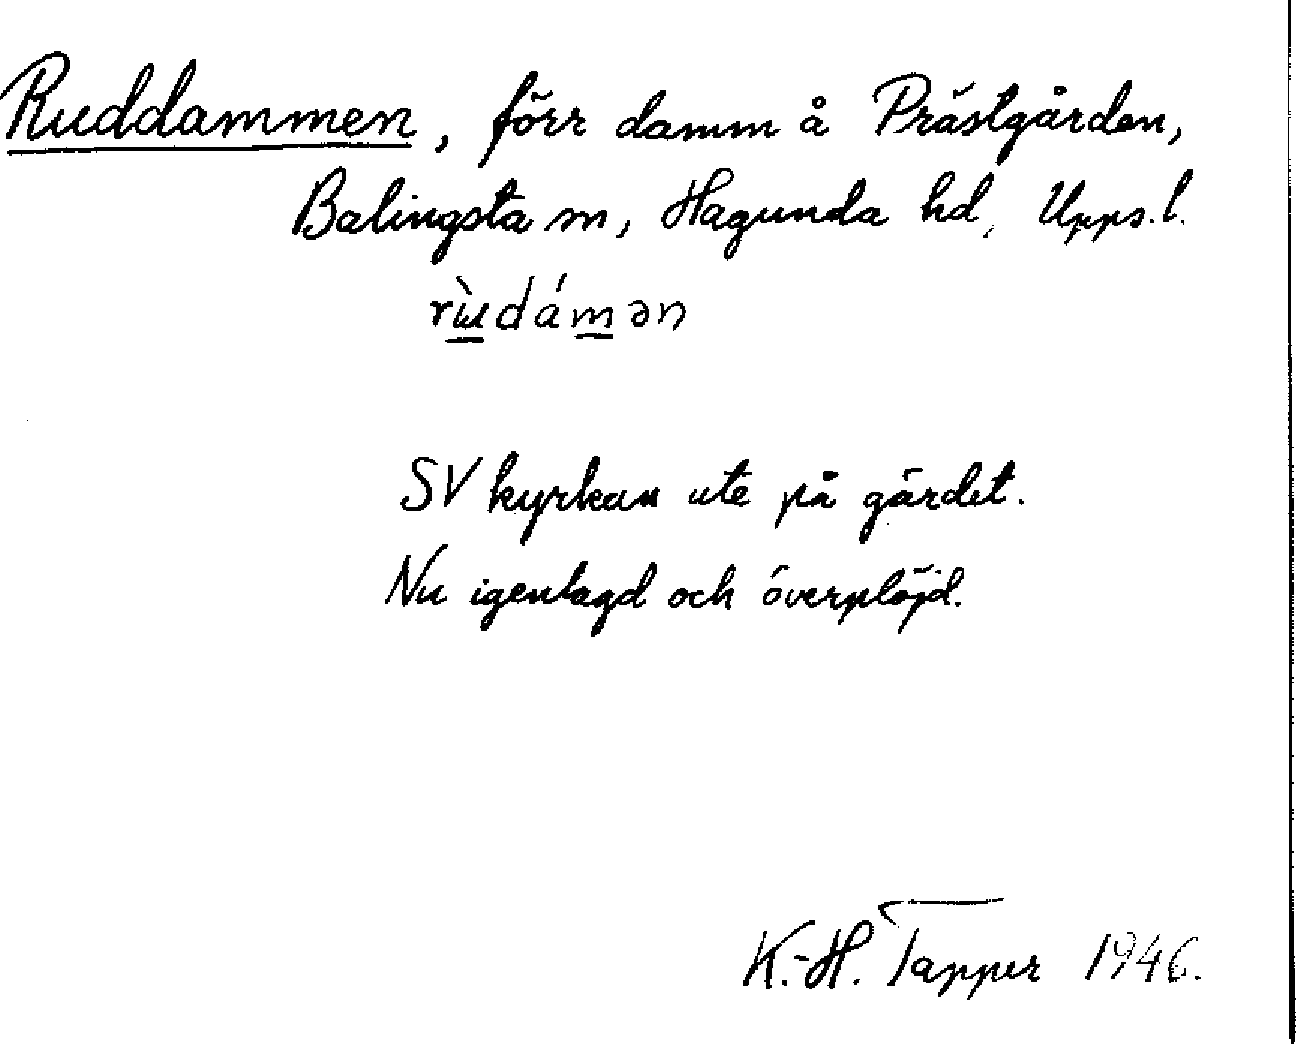 Ruddammen, förr damm å Prästgården,
Balingsta sn, Hagunda hd, Upps. l.
rɯ̲̀dám̲ən
SV kyrkan ute på gärdet.
Nu igenlagd och överplöjd.
K.-H. Tapper 1946.